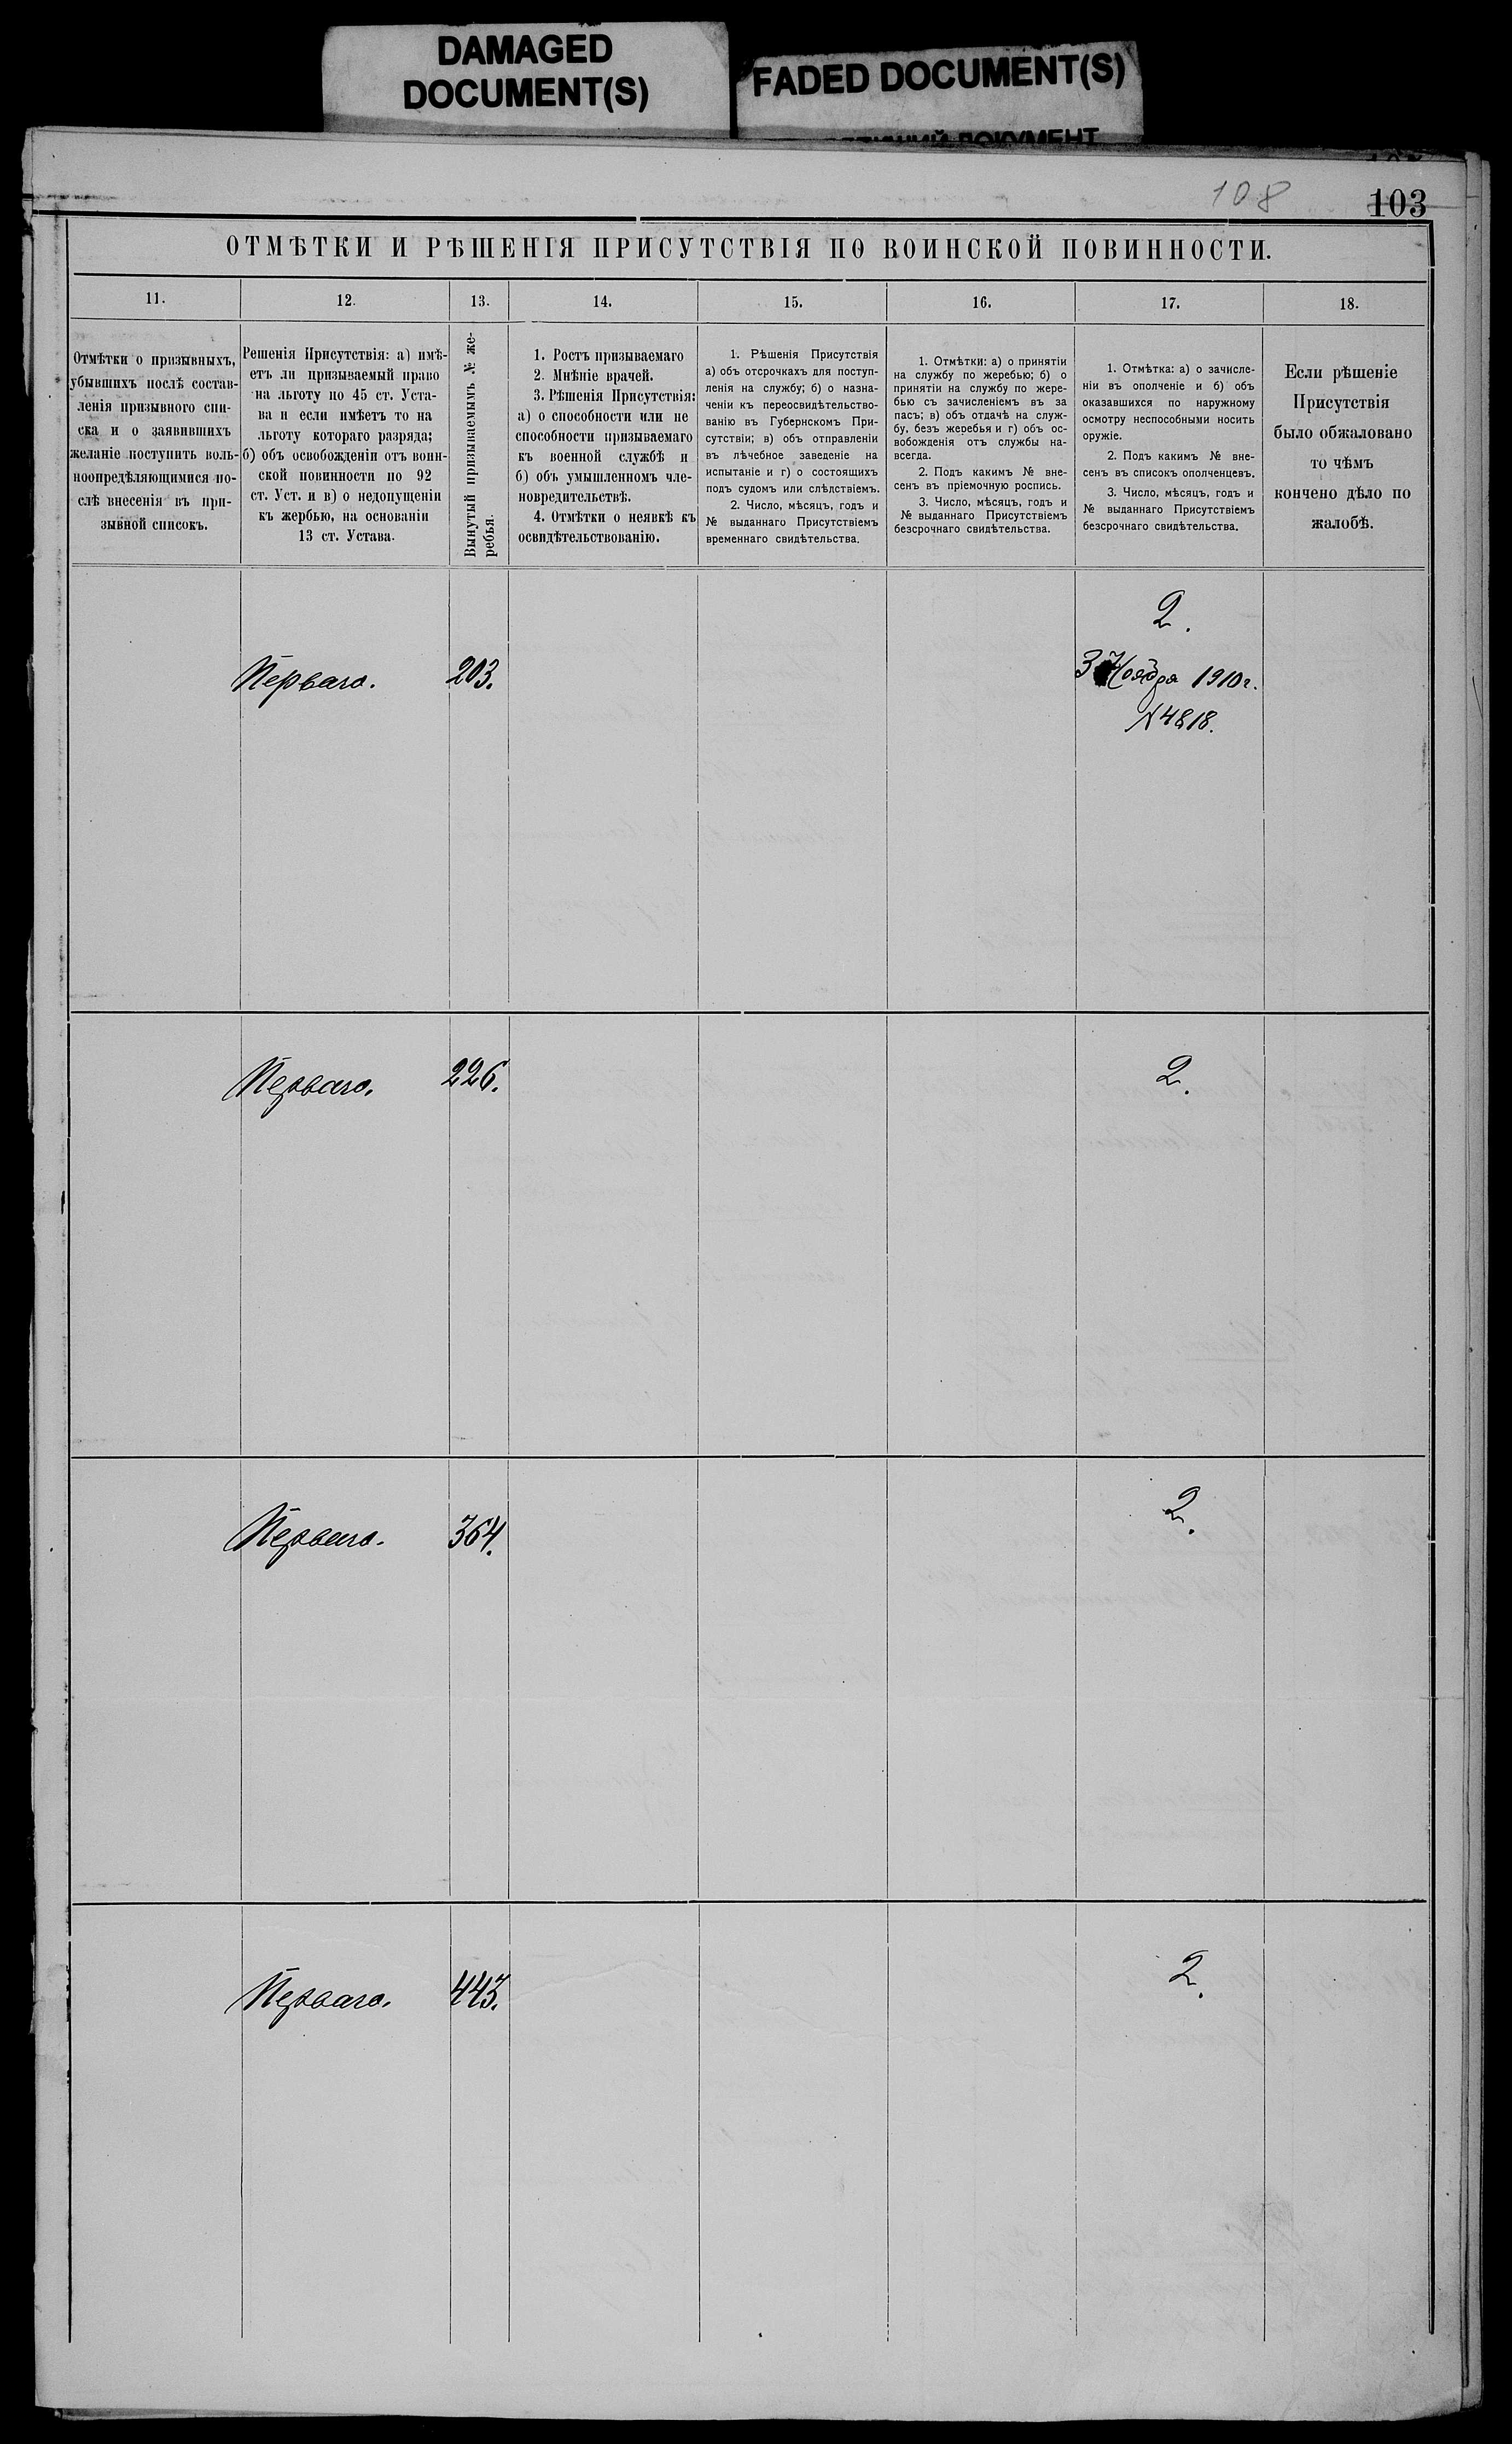 DAMAGED
DOCUMENT(S)
FADED DOCUMENT(S)
ДОКУМЕНТ
108
103
ОТМѢТКИ И РѢШЕНІЯ ПРИСУТСТВІЯ ПО ВОИНСКОЙ ПОВИННОСТИ.
11.
12.
13.
14.
15.
16.
17.
18.
Отмѣтки о призывныхъ,
убывшихъ послѣ состав-
ленія призывного спи-
ска и о заявившихъ
желаніе поступить воль-
ноопредѣляющимися по-
слѣ внесенія въ при-
зывной списокъ.
Решенія Присутствія: а) имѣ-
етъ ли призываемый право
на льготу по 45 ст. Уста-
ва и если имѣетъ то на
льготу котораго разряда;
б) объ освобожденіи отъ воин-
ской повинности по 92
ст. Уст. и в) о недопущеніи
къ жербью, на основаніи
13 ст. Устава.
Вынутый призываемымъ № же-
ребья.
1. Ростъ призываемаго
2. Мнѣніе врачей.
3. Рѣшенія Присутствія:
а) о способности или не
способности призываемаго
къ военной службѣ и
б) объ умышленномъ чле-
новредительствѣ.
4. Отмѣтки о неявкѣ къ
освидѣтельствованію.
1. Рѣшенія Присутствія
а) объ отсрочкахъ для поступ-
ленія на службу; б) о назна-
ченіи къ переосвидѣтельство-
ванію въ Губернскомъ При-
сутствіи; в) объ отправленіи
въ лѣчебное заведеніе на
испытаніе и г) о состоящихъ
подъ судомъ или слѣдствіемъ.
2. Число, мѣсяцъ, годъ и
№ выданнаго Присутствіемъ
временнаго свидѣтельства.
1. Отмѣтки: а) о принятіи
на службу по жеребью; б) о
принятіи на службу по жере-
бью съ зачисленіемъ въ за
пасъ; в) объ отдачѣ на служ-
бу, безъ жеребья и г) объ ос-
вобожденія отъ службы на-
всегда.
2. Подъ какимъ № вне-
сенъ въ пріемочную роспись.
3. Число, мѣсяцъ, годъ и
№ выданнаго Присутствіемъ
безсрочнаго свидѣтельства.
1. Отмѣтка: а) о зачисле-
ніи въ ополченіе и б) объ
оказавшихся по наружному
осмотру неспособными носить
оружіе.
2. Подъ какимъ № вне-
сенъ въ списокъ ополченцевъ.
3. Число, мѣсяцъ, годъ и
№ выданнаго Присутствіемъ
безсрочнаго свидѣтельства.
Если рѣшеніе
Присутствія
было обжаловано
то чѣмъ
кончено дѣло по
жалобѣ.
Перваго.
203.
2.
3 Ноября 1910 г.
№ 4818.
Перваго.
226.
2.
Перваго.
364.
2.
Перваго.
443.
2.